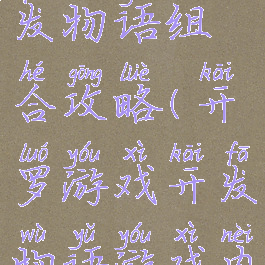 发物语组
hé gōng lüè kāi
合攻略(开
luó yóu xì kāi fā
罗游戏开发
wù yǔ yóu xì nèi
物语游戏内